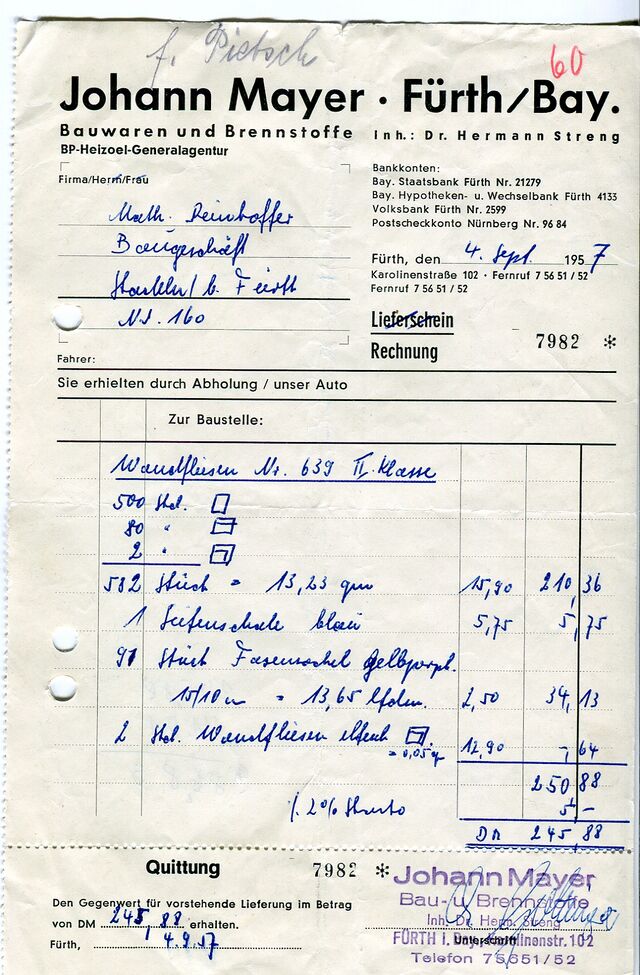 f. Pietsch
60
Johann Mayer · Fürth/Bay.
Bauwaren und Brennstoffe Inh.: Dr. Hermann Streng
BP-Heizoel-Generalagentur
Firma/Herrn/Frau
Math.
Baugeschäft
b. Fürth
Nr. 160
Bankkonten:
Bay. Staatsbank Fürth Nr. 21279
Bay. Hypotheken- u. Wechselbank Fürth 4133
Volksbank Fürth Nr. 2599
Postscheckkonto Nürnberg Nr. 96 84
Fürth, den 4. Sept. 1957
Karolinenstraße 102 · Fernruf 7 56 51 / 52
Fernruf 7 56 51 / 52
Lieferschein
Rechnung 7982 *
Fahrer:
Sie erhielten durch Abholung / unser Auto
Zur Baustelle:
Wandfliesen Nr. 639 II. Klasse
500 Stck.
80 "
2 "
582 Stück = 13,23 qm 15,90 210,36
1 Seifenschale blau 5,75 5,75
91 Stück Fasensockel gelbporph.
15/10 cm = 13,65 lfdm. 2,50 34,13
2 Stck. Wandfliesen elfenb. 12,90 -,64
= 0,05 qm
250 88
./. 2% Skonto 5 -
DM 245,88
Quittung 7982 *
Den Gegenwert für vorstehende Lieferung im Betrag
von DM 245,88 erhalten.
Fürth, 4.9.57
Johann Mayer
Bau- u. Brennstoffe
Inh. Dr. Herm. Streng
FÜRTH i. Bay., Karolinenstr. 102
Unterschrift
Telefon 75651/52